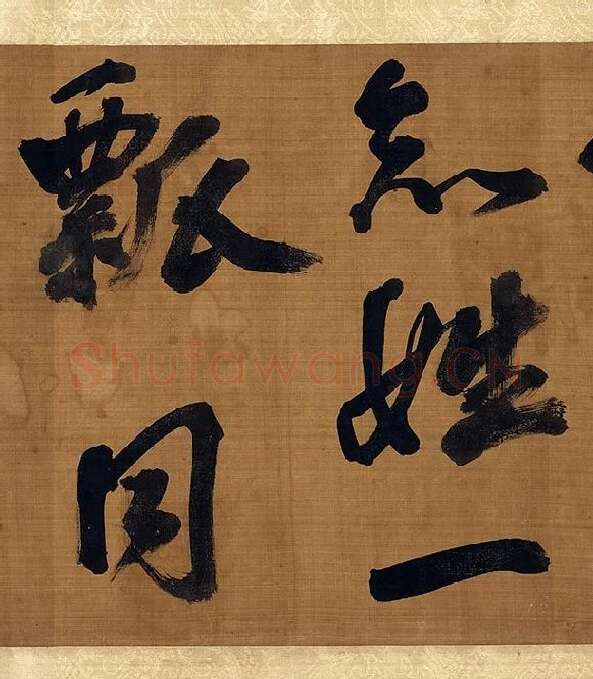 忘姓一
瓢同
Shufawang.CN